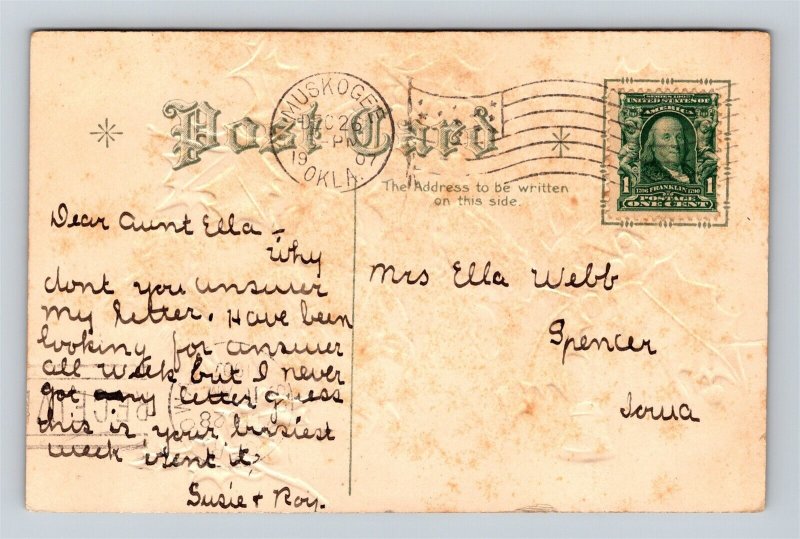 Post Card
MUSKOGEE
DEC 26
PM
19 07
OKLA.
SERIES 1902
UNITED STATES OF
AMERICA
1 1706 FRANKLIN 1790 1
POSTAGE
ONE CENT
The Address to be written
on this side.
Dear Aunt Ella –
Why
dont you answer
my letter. Have been
looking for answer
all week but I never
got any letter guess
this is your busiest
week isent it,
Susie + Roy.
Mrs Ella Webb
Spencer
Iowa